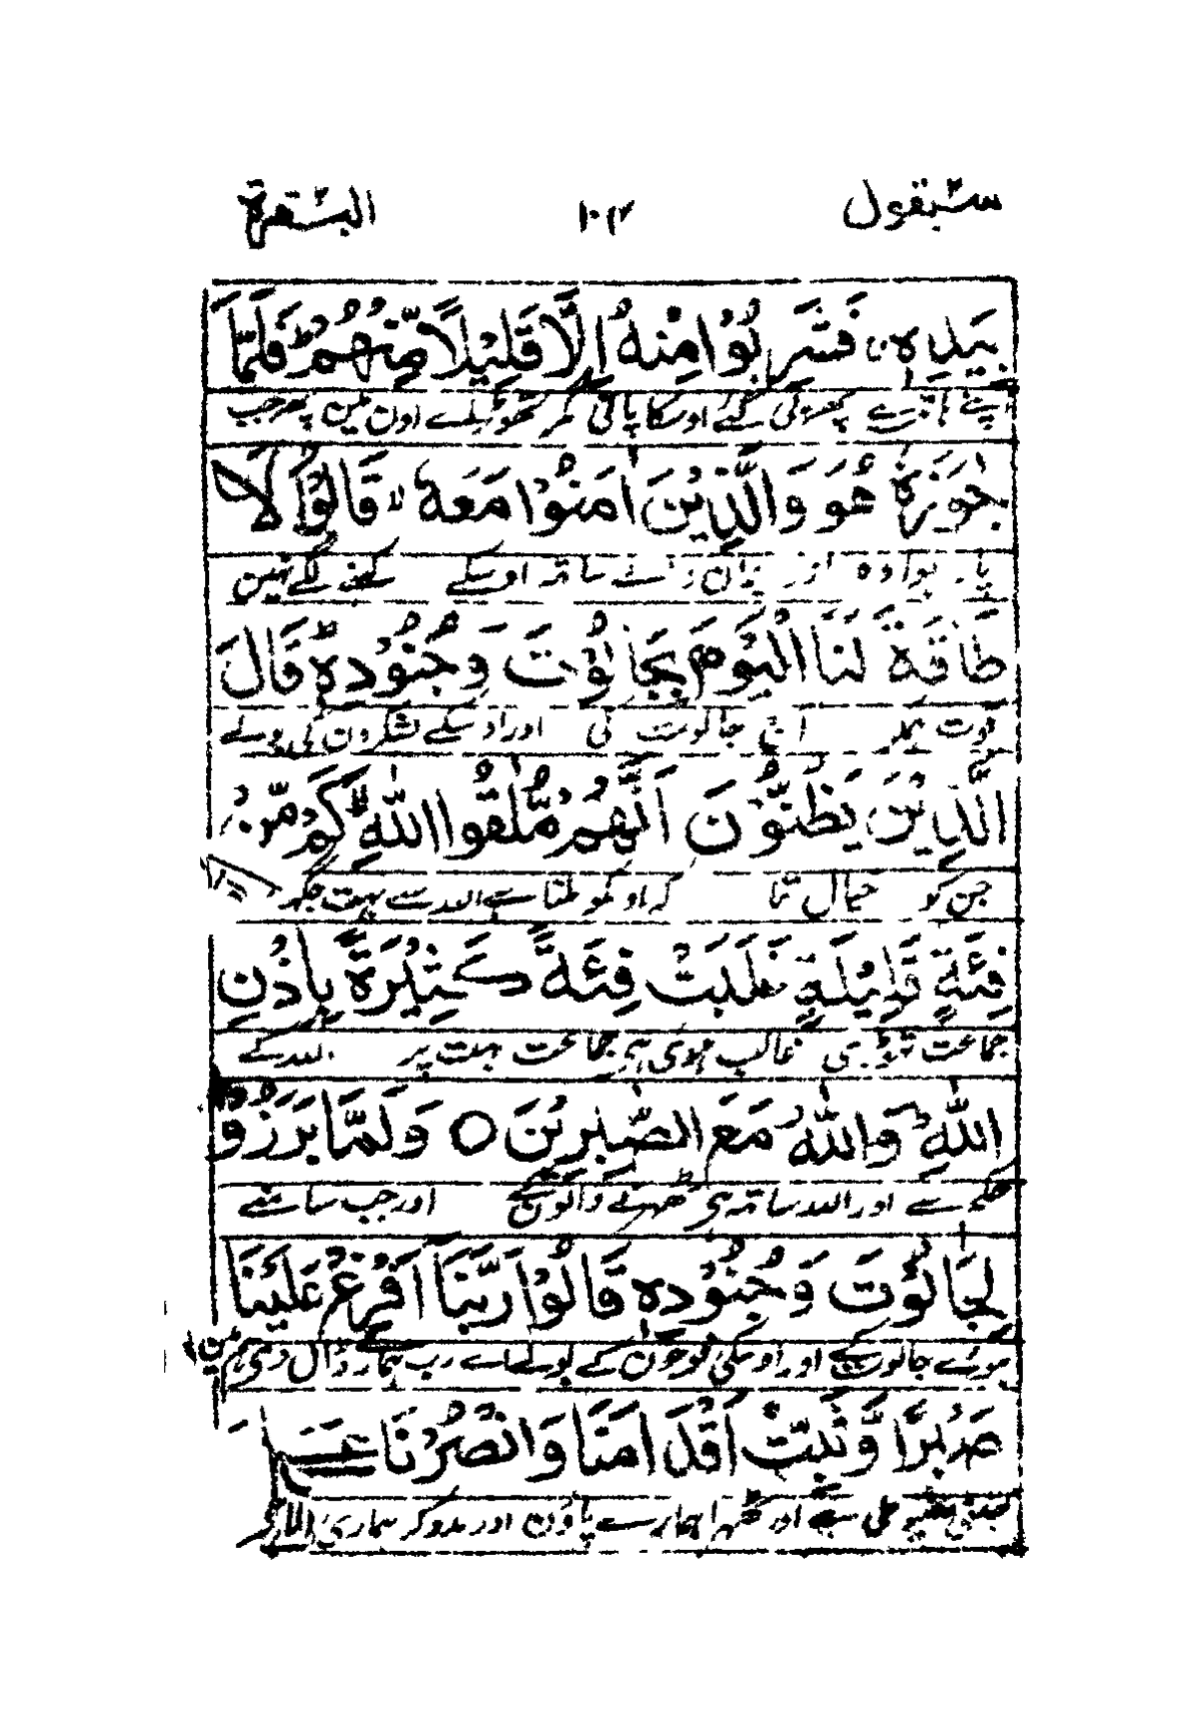 سیقول ۱۰۲ البقرة
بِيَدِهٖ ۚ فَشَرِبُوْا مِنْهُ اِلَّا قَلِيْلًا مِّنْهُمْ ؕ فَلَمَّا
اپنے ہاتھ سے پھر پی گئے اوسکا پانی مگر تھوڑے اون مین پھر جب
جَاوَزَهٗ هُوَ وَالَّذِيْنَ اٰمَنُوْا مَعَهٗ ۙ قَالُوْا لَا
پار ہوا وہ اور ساتھ اوسکے کہنے لگے نہین
طَاقَةَ لَنَا الْيَوْمَ بِجَالُوْتَ وَجُنُوْدِهٖ ؕ قَالَ
قوت ہمکو آج جالوت کی اور اوسکے لشکرون کی بولے
الَّذِيْنَ يَظُنُّوْنَ اَنَّهُمْ مُّلٰقُوا اللّٰهِ ۙ كَمْ مِّنْ
جن کو خیال تھا کہ اونکو ملنا ہے اللہ سے بہت جگہ
فِئَةٍ قَلِيْلَةٍ غَلَبَتْ فِئَةً كَثِيْرَةًۢ بِاِذْنِ
جماعت تھوڑی غالب ہوئی ہی جماعت بہت پر اللہ کے
اللّٰهِ ؕ وَاللّٰهُ مَعَ الصّٰبِرِيْنَ ○ وَلَمَّا بَرَزُوْا
حکم سے اور اللہ ساتھ ہی ٹھہرنے والون کے اور جب سامنے
لِجَالُوْتَ وَجُنُوْدِهٖ قَالُوْا رَبَّنَا اَفْرِغْ عَلَيْنَا
ہوئے جالوت کے اور اوسکی فوجون کے بولے اے رب ہمارے ڈال دی ہم مین
صَبْرًا وَّثَبِّتْ اَقْدَامَنَا وَانْصُرْنَا عَلَى
اور ٹھہرا ہمارے پاؤن اور مدد کر ہماری